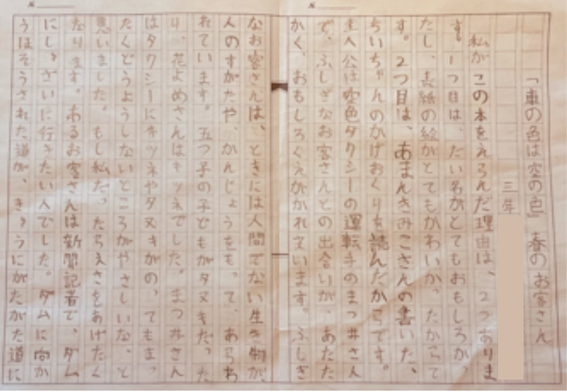 『車の色は空の色』春のお客さん
三年
私がこの本をえらんだ理由は、2つありま
す。1つ目は、だい名がとてもおもしろか
たし、表紙の絵がとてもかわいか、たからで
す。2つ目は、あまんきみこさんの書いた、
ちいちゃんのかげおくりを読んだからです。
主人公は空色タクシーの運転手のまつ井さん
で、ふしぎなお客さんとの出合いが、あたた
かく、おもしろくえがかれています。ふしぎ
なお客さんは、ときには人間でない生き物が、
人のすがたや、かんじょうをも、て、あらわ
れています。五つ子の子どもがタヌキだ、た
り、花よめさんはキツネでした。まつ井さん
はタクシーにキツネやタヌキがの、てもま、
たくどうようしないところがやさしいな、と
思いました。もし私だ、たらえさをあげたく
なります。あるお客さんは新聞記者で、ダム
にしゅざいに行きたい人でした。ダムに向か
うほそうされた道が、きゅうにがたがた道に